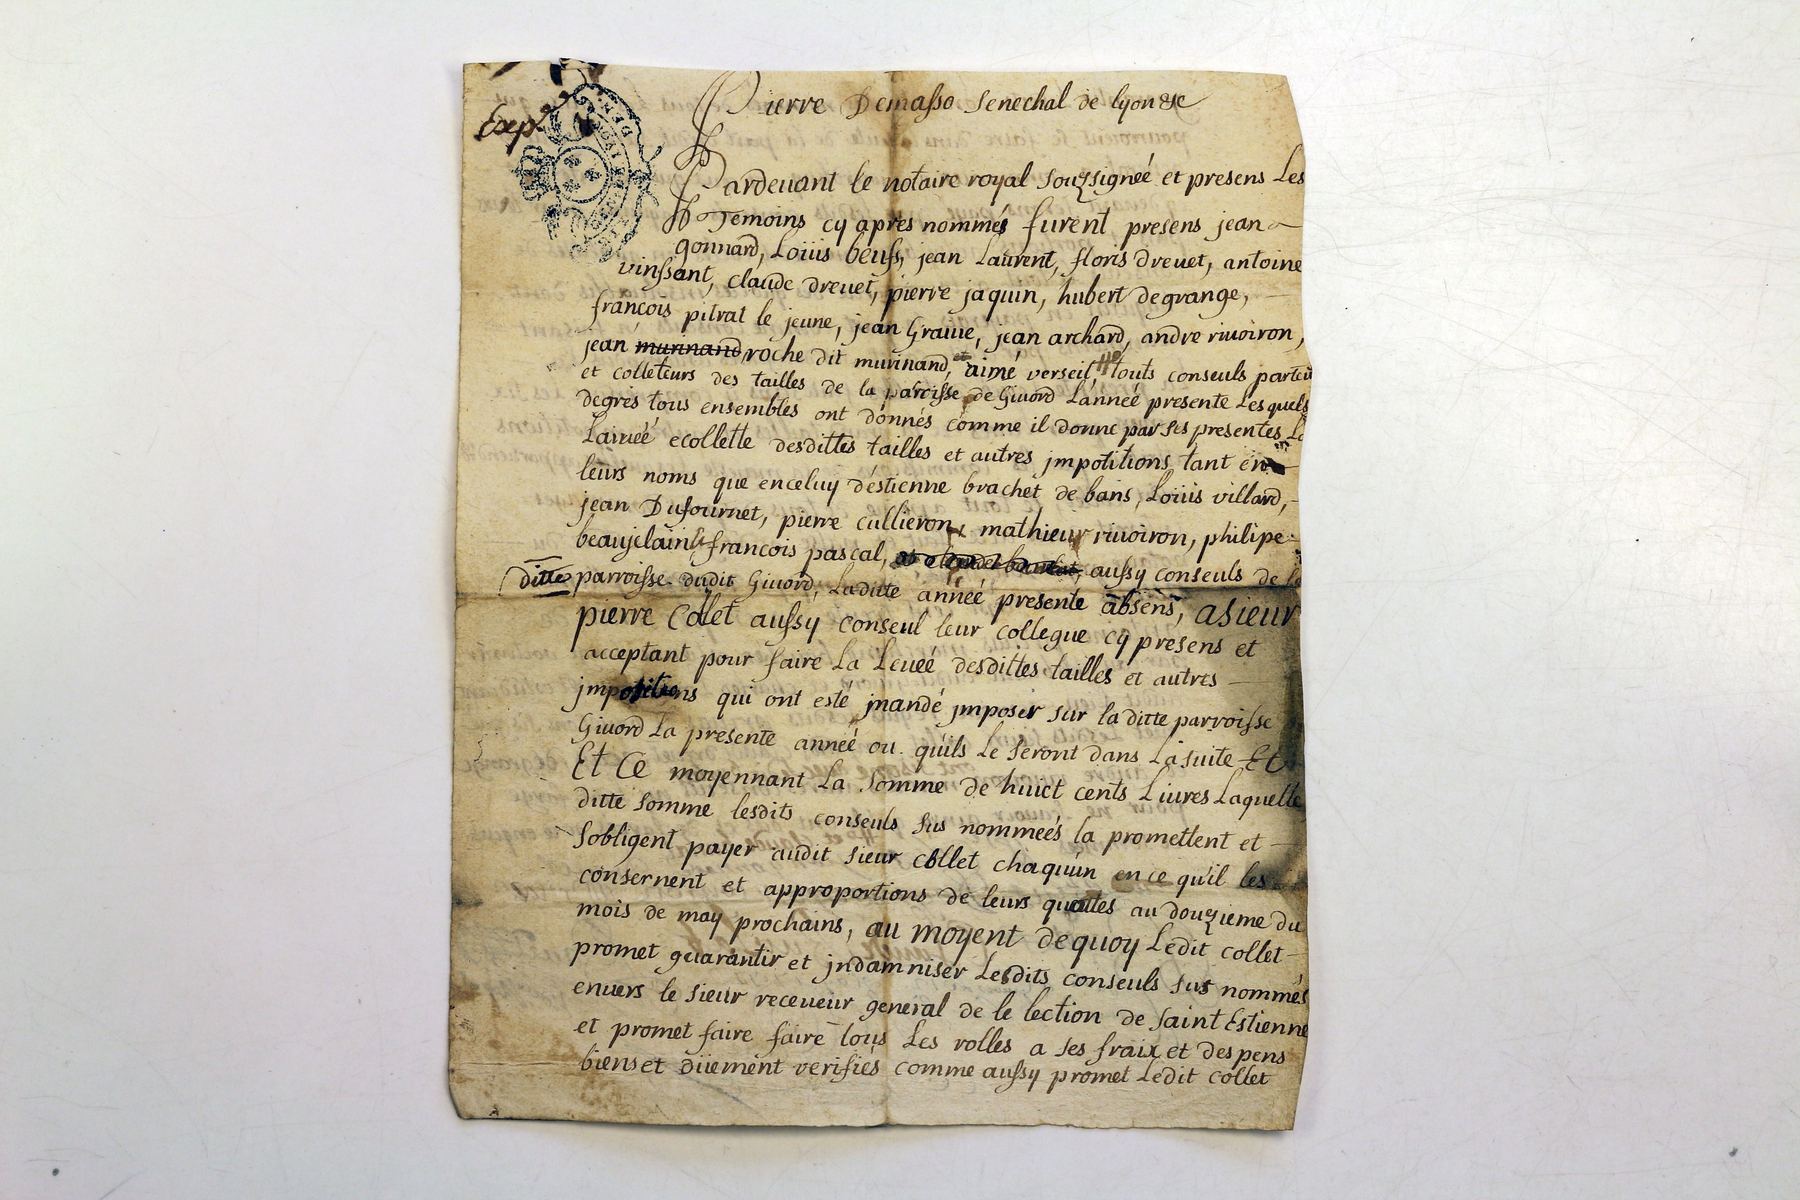 Exp.re
Pierre Demasso senechal de lyon &c
Pardeuant le notaire royal souzsignéé et presens Les
Temoins cy apres nommés furent presens jean
gonnard, Loüis beuf, jean Laurent, floris dreuet, antoine
vinssant, claude dreuet, pierre jaquin, hubert degrange,
françois pitrat le jeune, jean Graue, jean archard, andre riuoiron,
jean murinand roche dit murinand, et aimé verseil touts conseuls
et colleteurs des tailles de la paroisse de Giuord L'annéé presente Les quels
degrés tous ensembles ont donnés comme il donne par ses presentes La
Laiuéé ecollette desdittes tailles et autres jmpotitions tant en
leurs noms que enceluy d'éstienne brachet de bans, Loüis villard,
jean Dufournet, pierre cullieron, mathieur riuoiron, philipe
beaujelain françois pascal, aussy conseuls de la
ditte parroisse dudit Giuord, Laditte annéé presente absens, a sieur
pierre Collet aussy conseul leur collegue cy presens et
acceptant pour faire La Leuéé desdittes tailles et autres
jmpotitions qui ont esté mandé jmposer sur laditte parroisse
Giuord La presente annéé ou qu'ils Le seront dans La suite
Et Ce moyennant La somme de huict cents Liures Laquelle
ditte somme lesdits conseuls sus nommeés la promettent et
s'obligent payer audit sieur collet chaquun en ce qu'il les
consernent et apportions de leurs quottes au douzieme du
mois de may prochains, au moyent de quoy Ledit collet
promet guarantir et jndamniser Lesdits conseuls sus nommés
enuers le sieur receueur general de le lection de saint Estienne
et promet faire faire tous Les rolles a ses fraix et despens
biens et düement verifiés comme aussy promet Ledit collet